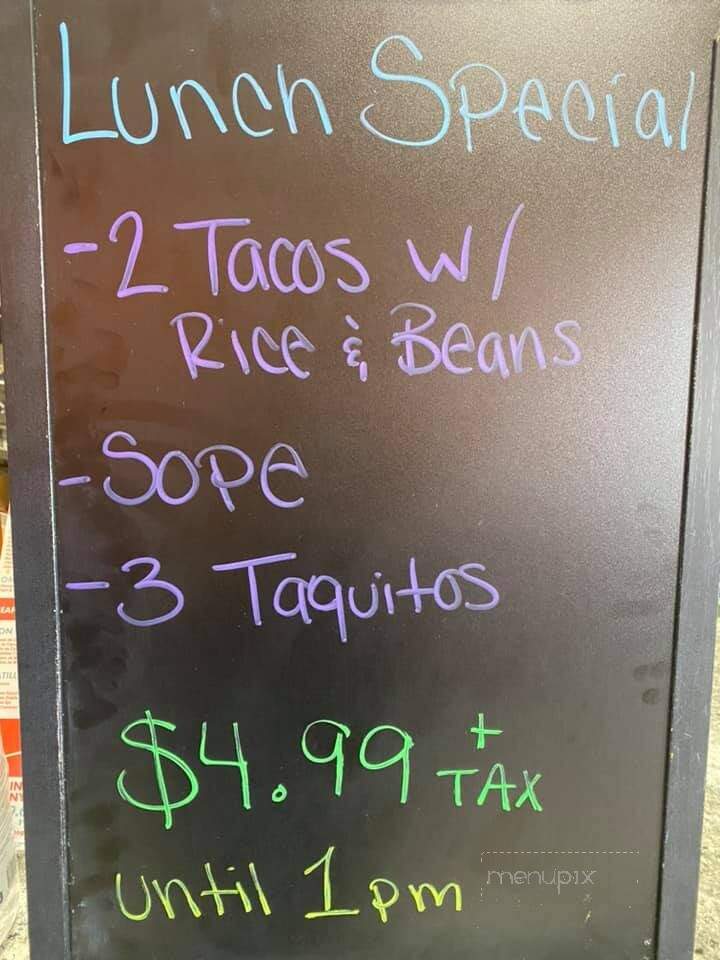 Lunch Special
-2 Tacos w/
Rice & Beans
-Sope
-3 Taquitos
$4.99 + TAX
until 1pm
menupix